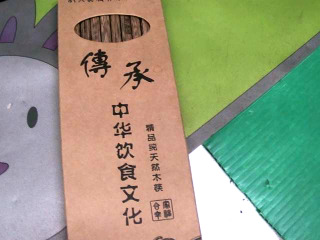 傳承
中华饮食文化
精品纯天然木筷